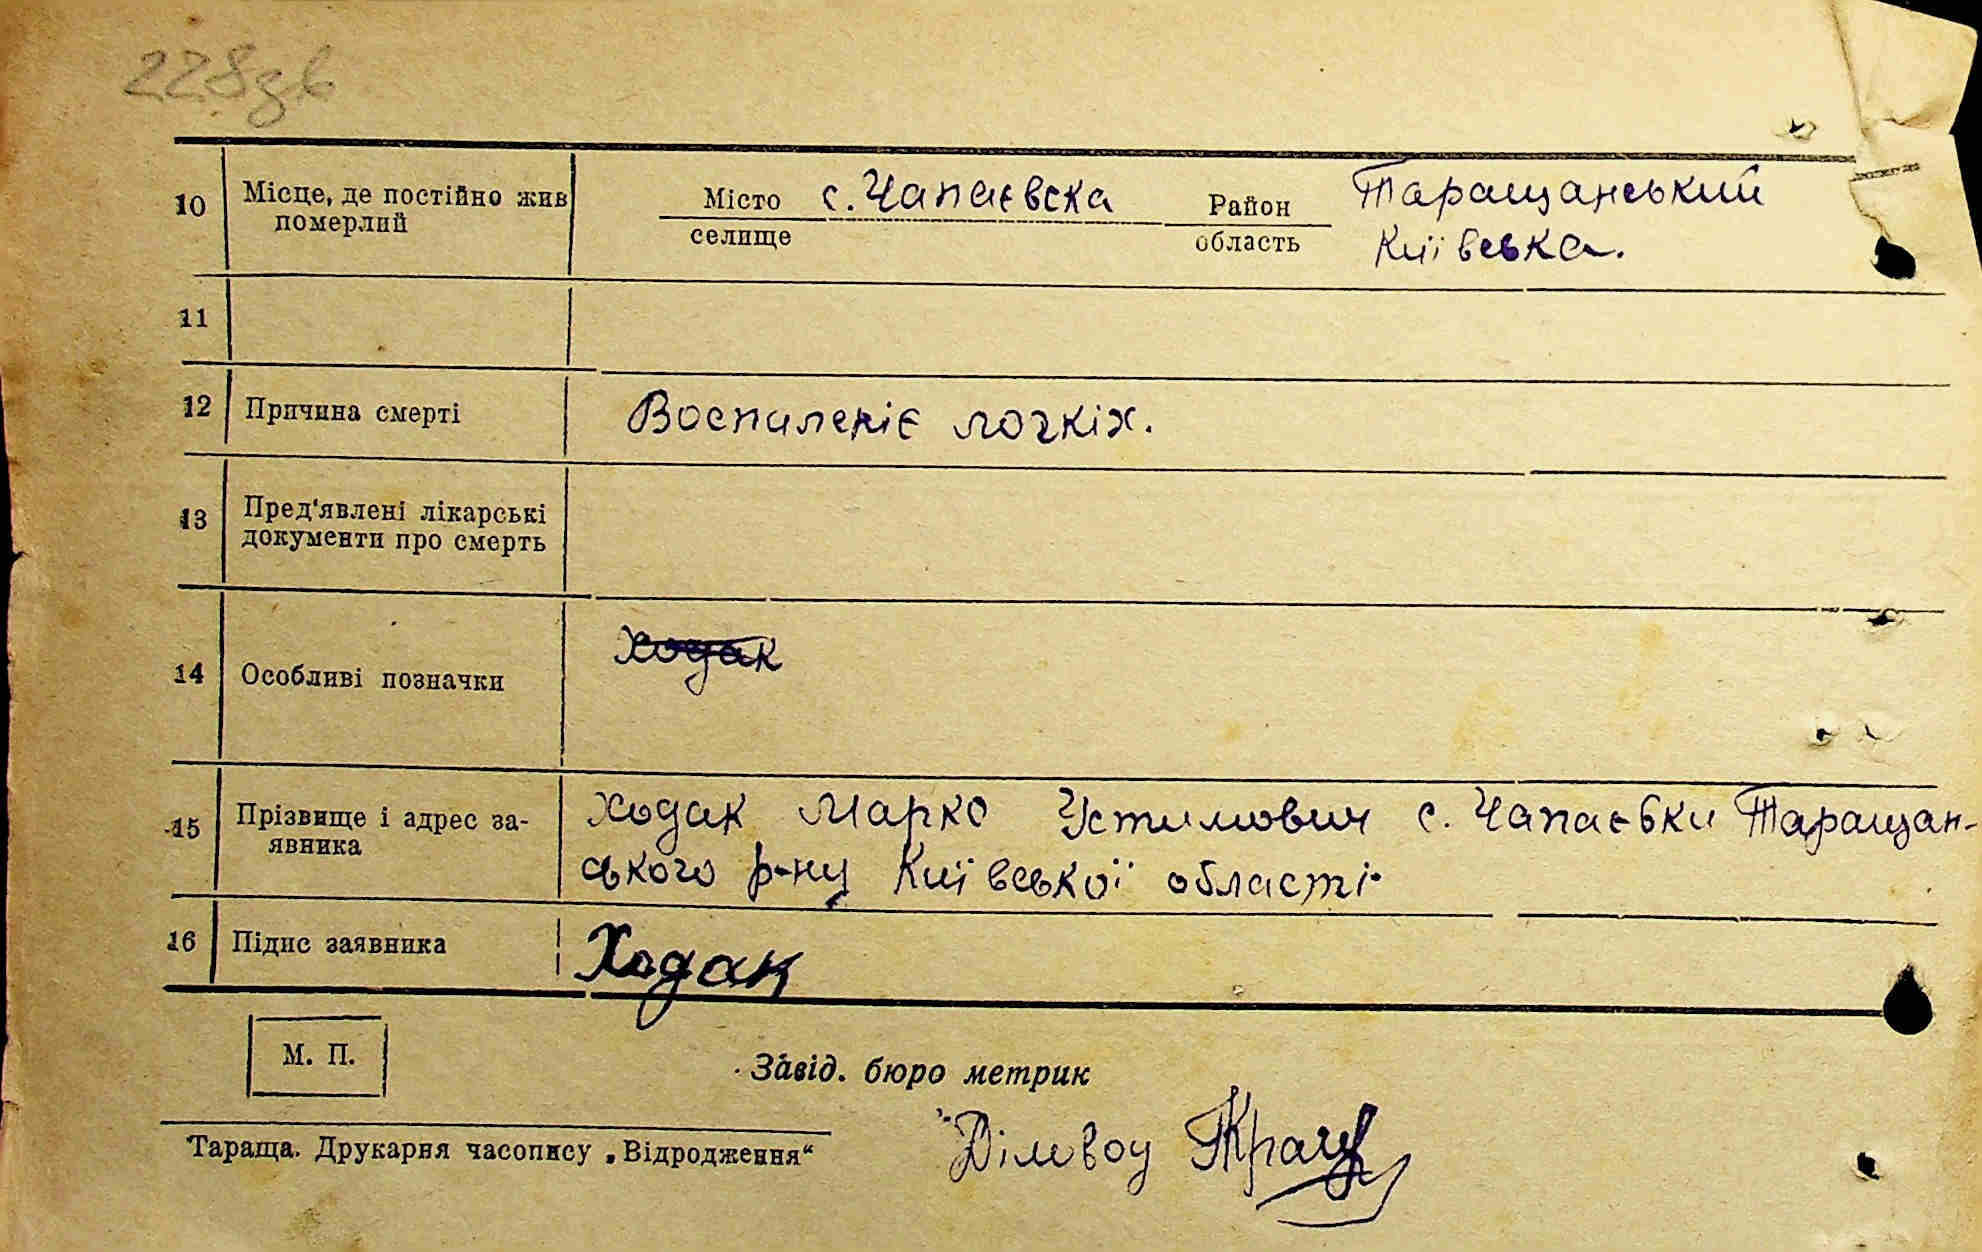 228зв
10 Місце, де постійно жив Місто с. Чапаєвска Район Таращанський
померлий селище область Київська.
11
12 Причина смерті Воспиленіє логкіх.
13 Пред'явлені лікарські
документи про смерть
14 Особливі позначки Ходак
15 Прізвище і адрес за- Ходак Марко Устимович с. Чапаєвки Таращан-
явника ського р-ну Київської області
16 Підис заявника Ходак
М. П.
Завід. бюро метрик
Діловод
Тараща. Друкарня часопису „Відродження“